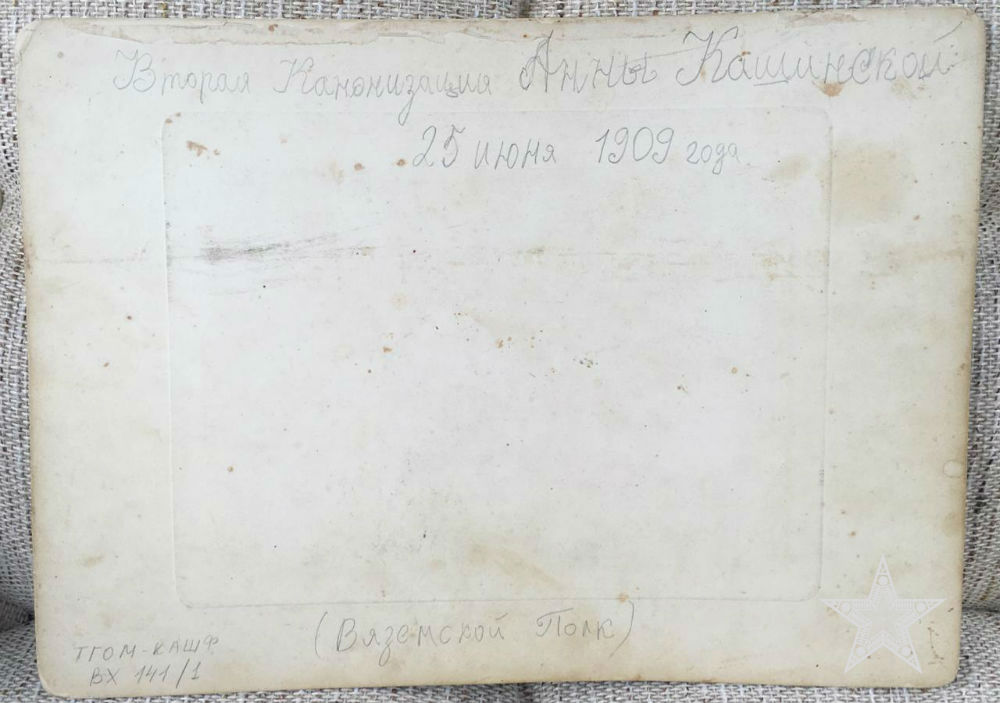 Вторая Канонизация Анны Кашинской
25 июня 1909 года.
(Вяземской Полк)
ТГОМ-КАШФ
ВХ 141/1